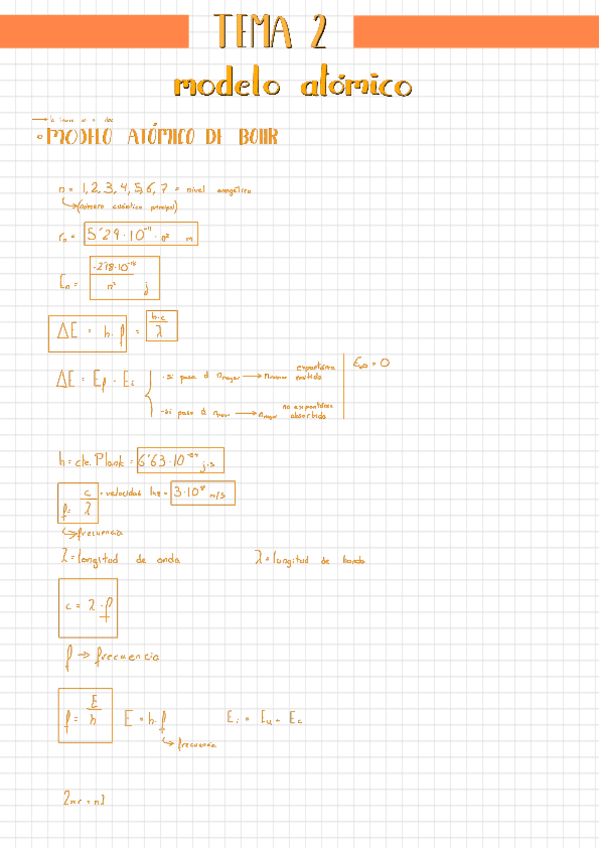 TEMA 2
modelo atómico
MODELO ATÓMICO DE BOHR
n = 1, 2, 3, 4, 5, 6, 7 = nivel energético
(número cuántico principal)
rₙ = 5'29·10⁻¹¹ · n² m
Eₙ = -2'18·10⁻¹⁸ / n² j
ΔE = h·f = h·c / λ
ΔE = Ef - Ei
·si pasa d nmayor → nmenor espontánea emitida
·si pasa d nmenor → nmayor no espontánea absorbida
E∞ = 0
h = cte. Plank = 6'63·10⁻³⁴ j·s
f = c / λ = velocidad luz = 3·10⁸ m/s
frecuencia
λ = longitud de onda λ = longitud de banda
c = λ·f
f → frecuencia
f = E / h E = h·f
frecuencia
2πr = nλ